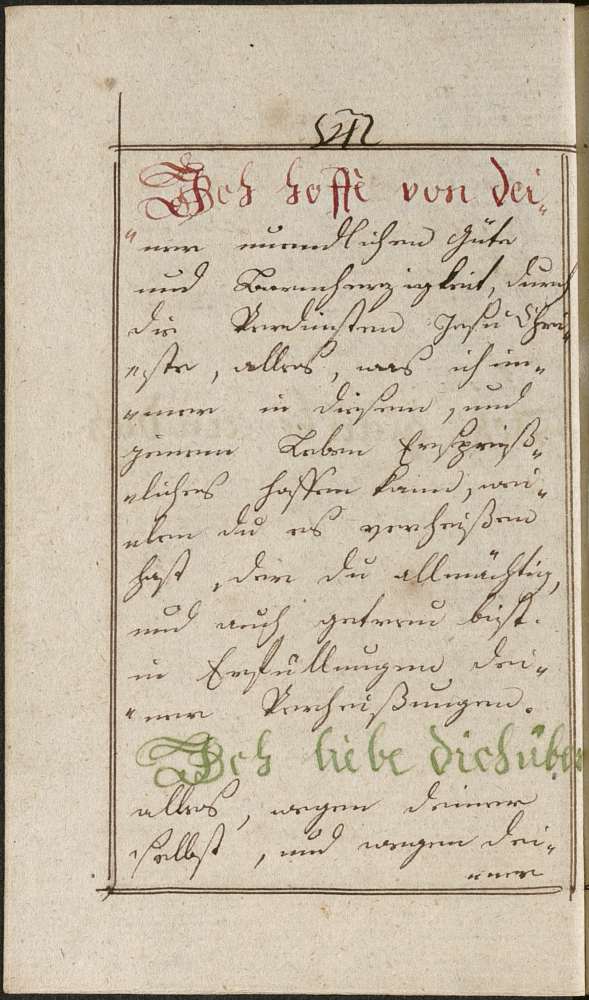 Ich hoffe von dei„
„ner unendlichen Güte
und Barmherzigkeit, durch
die Verdiensten Jesu Chri„
„ste, alles, was ich im„
„mer in diesem, und
jenem Leben Erspries„
„liches hoffen kann, wei„
„len du es verheißen
hast, der du allmächtig,
und auch getreu bist.
in Erfüllungen dei„
„ner Verheißungen.
Ich liebe dich über
alles, wegen deiner
selbst, und wegen dei„
„ner